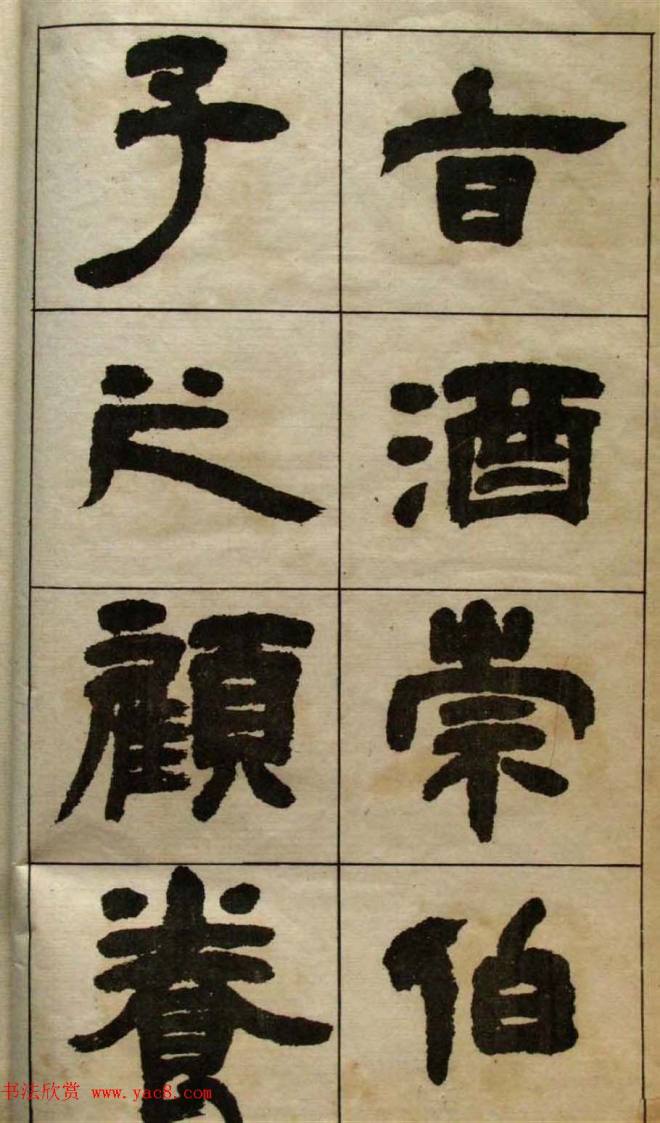 旨酒崇伯
子之顧養
书法欣赏 www.yac8.com